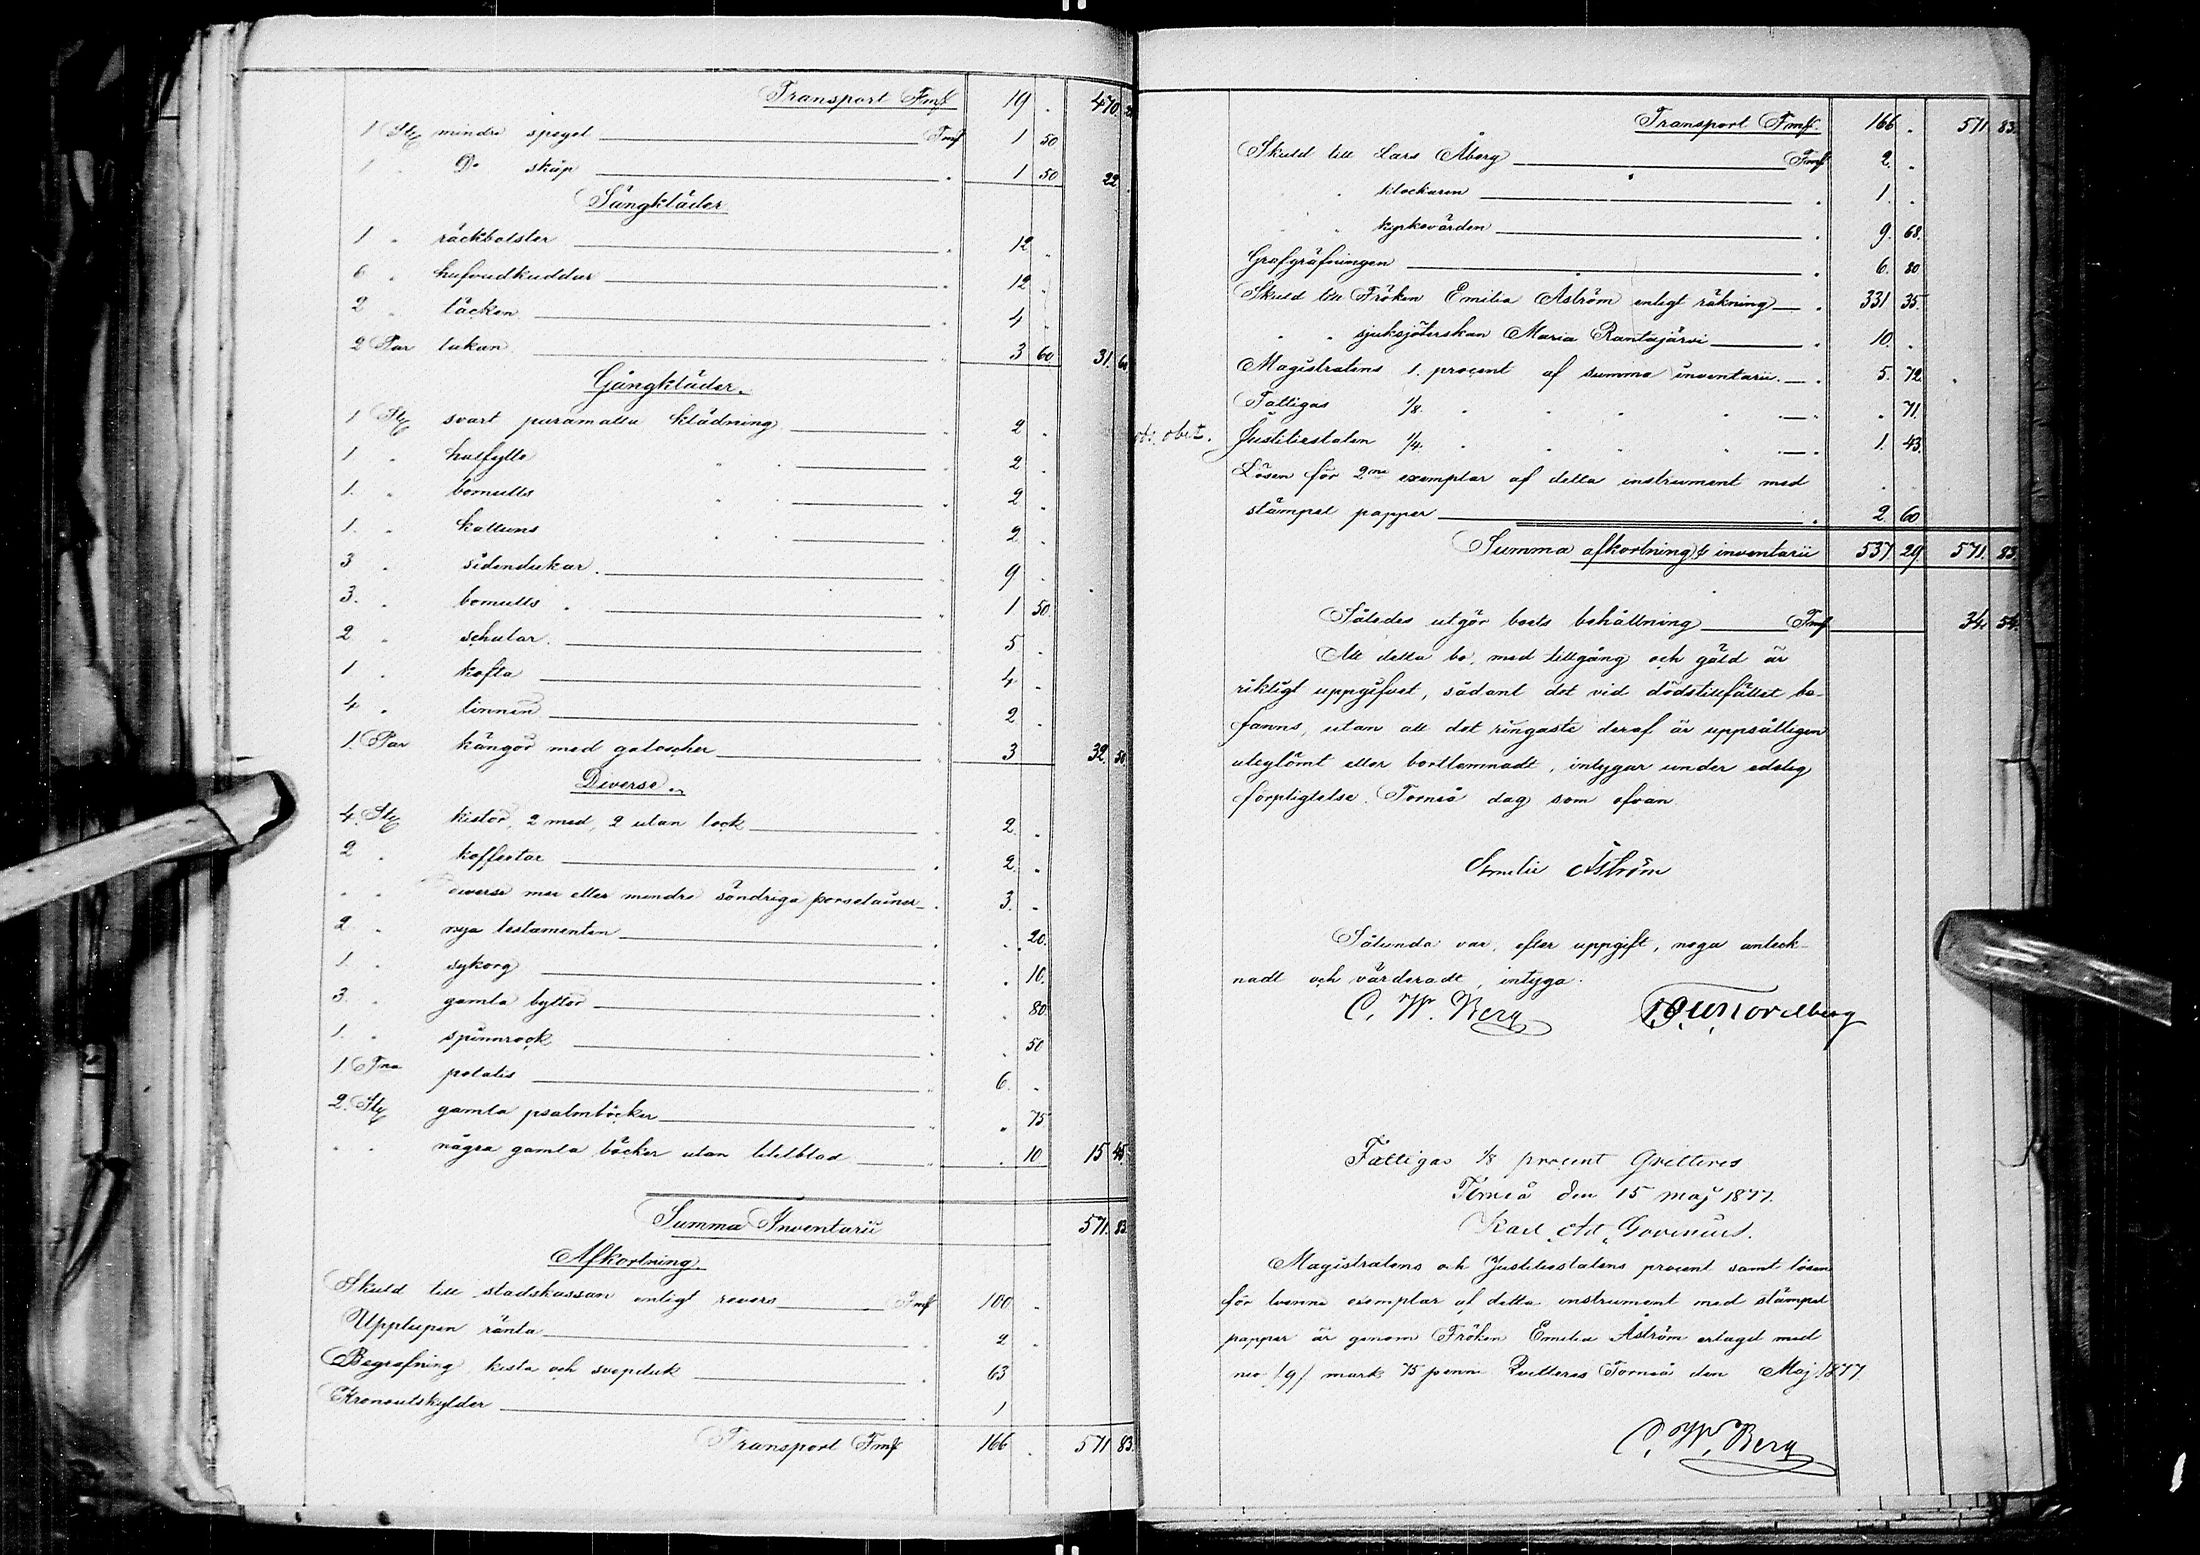 Transport Fmk 19 . 470. 28
1 Stk mindre spegel Fmk 1 50
1 " Do skåp " 1 50 22 .
Sängkläder
1 " räckbolster " 12 .
6 " hufvudkuddar " 12 .
2 " täcken " 4 .
2 Par lakan " 3 60 31. 60
Gångkläder.
1 Stk svart paramatta klädning " 2 .
1 " halfylle " " 2 .
1. " bomulls " " 2 .
1. " kattuns " " 2 .
3 " sidendukar. " 9 .
3. " bomulls " " 1 50.
2 " schalar. " 5 .
1 " kofta " 4 .
4 " linnen " 2 .
1. Par kängor med galoscher " 3 32. 50.
Diverse.
4. Stk kistor, 2 med, 2 utan lock " 2. .
2 " koffertar " 2. .
" " diverse mer eller mindre söndriga porselainer " 3. .
2 " nya testamenten " . 20.
1. " sykorg " . 10.
3. " gamla byttor " . 80
1. " spinnrock " . 50
1 Tna potatis " 6. .
2. Stk gamla psalmböcker " . 75
" " några gamla böcker utan titelblad " . 10 15 45.
Summa Inventarii 571. 83.
Afkortning.
Skuld till stadskassan enligt revers Fmk 100 .
Upplupen ränta " 2 .
Begrafning, kista och svepduk " 63
Kronoutskylder " 1
Transport Fmk 166 . 571 83.
Transport Fmk. 166 . 571. 83.
Skuld till Lars Åberg Fmk 2. .
" " klockaren " 1. .
" " kyrkovärden " 9. 68.
Grafgräfningen " 6. 80
Skuld till Fröken Emilia Åström enligt räkning " 331 35.
" " sjuksjöterskan Maria Rantajärvi " 10. .
Magistratens 1. procent af summa inventarii. " 5. 72.
Fattigas 1/8. " " " " " . 71.
Justitiestaten 1/4. " " " " " 1. 43.
Lösen för 2ne exemplar af detta instrument med
stämpel papper " 2. 60
Summa afkortning & inventarii 537 29. 571. 83.
Således utgör boets behållning Fmk 34. 54.
Att detta bo, med tillgång och gäld är
riktigt uppgifvet, sådant det vid dödstillfället be-
fanns, utan att det ringaste deraf är uppsåtligen
uteglömt eller bortlemnadt, intygar under edelig
förpligtelse. Torneå dag som ofvan.
Emilie Åström
Sålunda var, efter uppgift, noga anteck-
nadt och värderadt, intyga.
C. W. Berg Nordberg
Fattigas 1/8 procent Qvitteras
Torneå den 15 maj 1877.
Karl Ad.
Magistratens och Justitiestatens procent samt lösen
för tvenne exemplar af detta instrument med stämpel
papper är genom Fröken Emilia Åström erlagd med
nio /9/ mark 75 penni Qvitteras Torneå den Maj 1877.
C. W. Berg